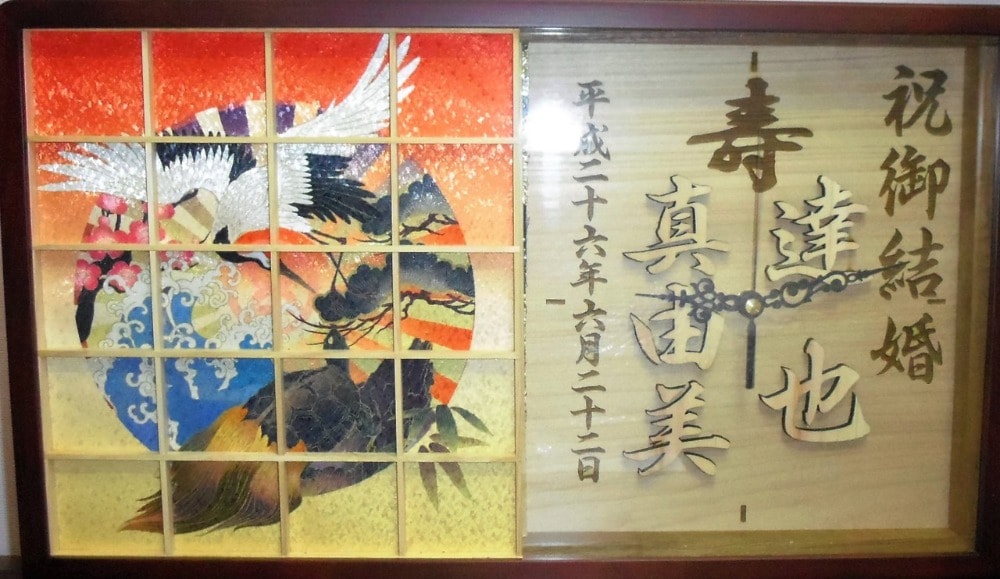 祝御結婚
寿
達也
真由美
平成二十六年六月二十二日